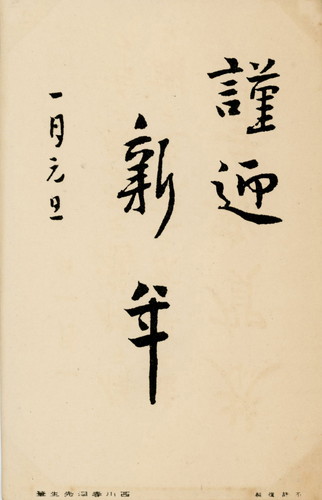 謹迎
新年
一月元旦
不許複製
西川春洞先生筆